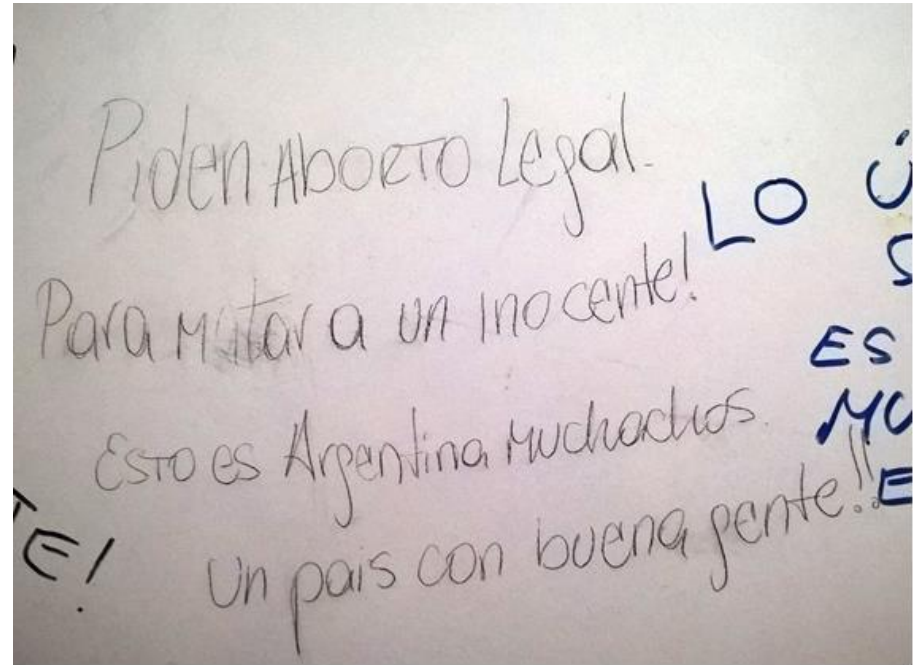 Piden Aborto Legal.
Para matar a un inocente!
Esto es Argentina Muchachos.
Un pais con buena gente!!
LO Ú
S
ES
MU
E
TE!